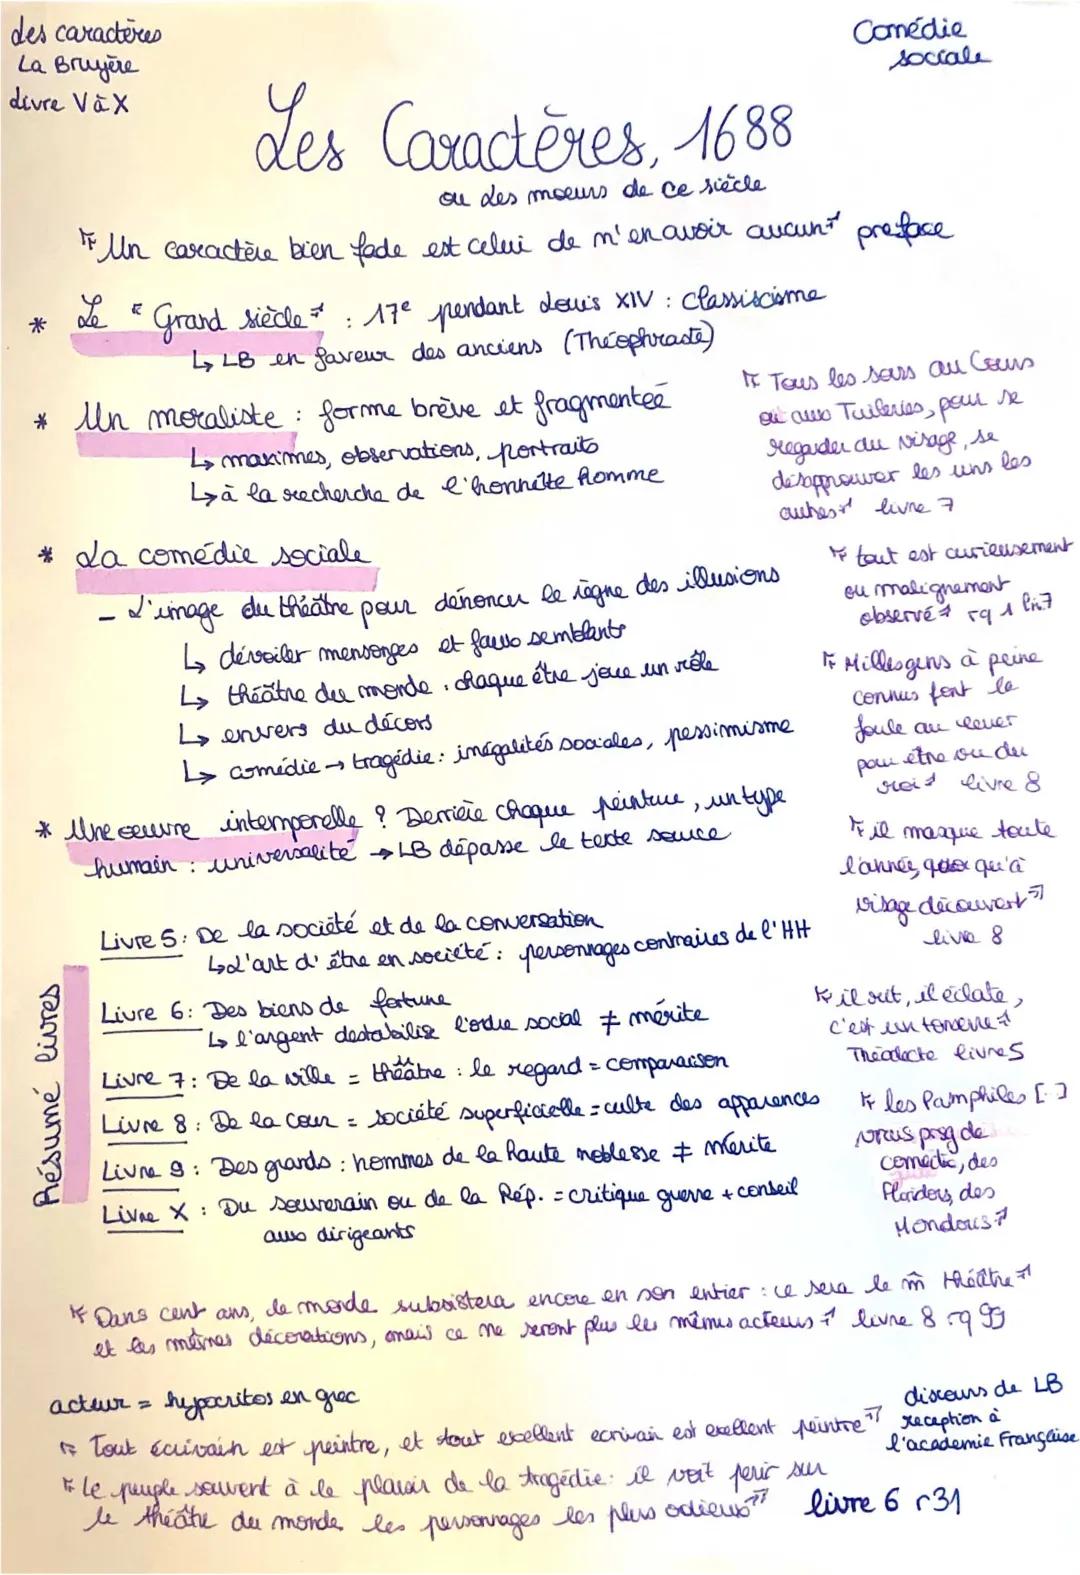 des caractères
La Bruyère
Livre V à X
Comédie
sociale
Les Caractères, 1688
ou Les moeurs de ce siècle
"Un caractère bien fade est celui de n'en avoir aucun" preface
* Le "Grand siècle" : 17e pendant Louis XIV : classiscisme
↳ LB en faveur des anciens (Théophraste)
* Un moraliste : forme brève et fragmentée
↳ maximes, observations, portraits
↳ à la recherche de l'honnête homme
"Tous les soirs au Cours
ou aux Tuileries, pour se
regarder au visage, se
désapprouver les uns les
autres" livre 7
* La comédie sociale
- L'image du théâtre pour dénoncer le règne des illusions
↳ dévoiler mensonges et faux semblants
↳ théâtre du monde : chaque être joue un rôle
↳ envers du décors
↳ comédie → tragédie : inégalités sociales, pessimisme
"tout est curieusement
ou malignement
observé" rq 1 liv.7
"Milles gens à peine
connus font la
foule au lever
pour être vu du
roi" livre 8
* Une oeuvre intemporelle ? Derrière chaque peinture, un type
humain : universalité → LB dépasse le texte source
"il masque toute
l'année, quoi qu'à
visage découvert"
livre 8
Résumé livres
Livre 5 : De la société et de la conversation
↳ L'art d'être en société : personnages contraires de l'HH
Livre 6 : Des biens de fortune
↳ l'argent destabilise l'ordre social ≠ mérite
Livre 7 : De la ville = théâtre : le regard = comparaison
Livre 8 : De la cour = société superficielle = culte des apparences
Livre 9 : Des grands : hommes de la haute noblesse ≠ mérite
Livre X : Du souverain ou de la Rép. = critique guerre + conseil
aux dirigeants
"il rit, il éclate,
c'est un tonnerre"
Théodecte livre 5
"les Pamphiles [..]
vrais prsg de
comédie, des
Floridors, des
Mondoris"
"Dans cent ans, le monde subsistera encore en son entier : ce sera le m̂ théâtre"
et les mêmes décorations, mais ce ne seront plus les mêmes acteurs" livre 8 rq 99
acteur = hypocritos en grec
"Tout écrivain est peintre, et tout excellent ecrivain est exellent peintre"
discours de LB
reception à
l'academie Française
"Le peuple souvent à le plaisir de la tragédie : il voit perir sur
le théâtre du monde les personnages les plus odieux" livre 6 r31